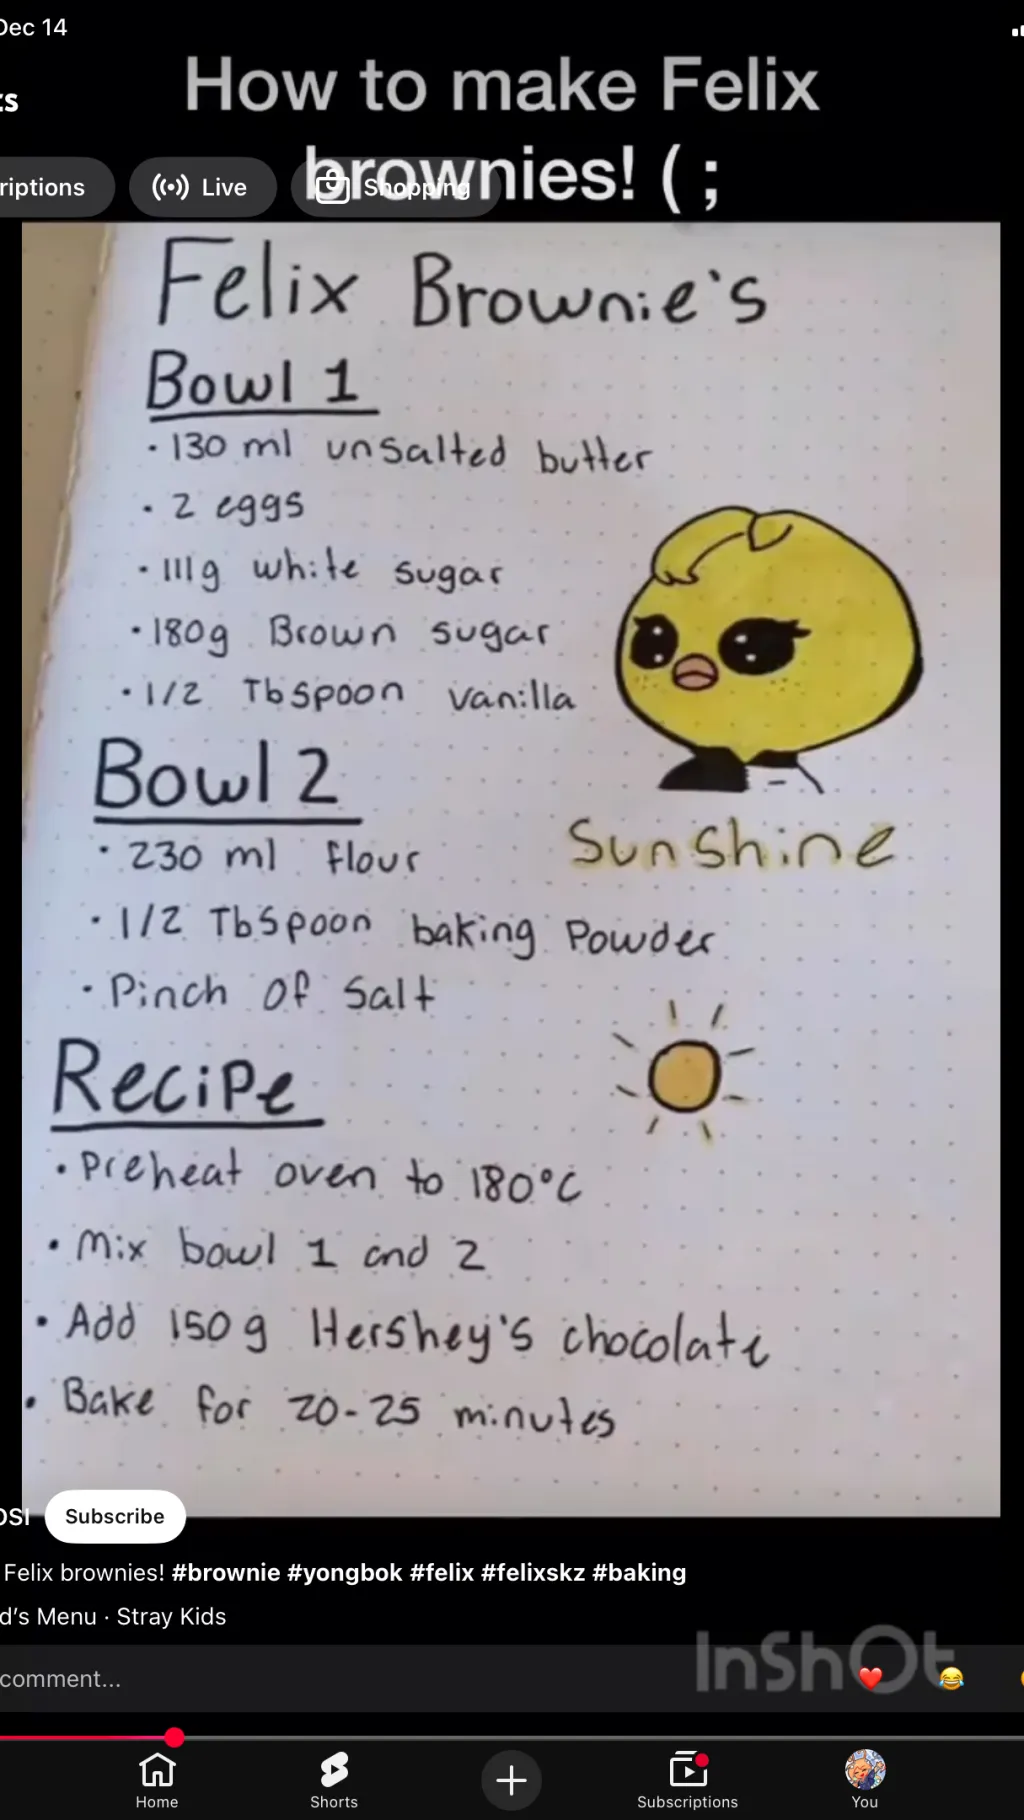 Dec 14
How to make Felix
brownies! ( ;
Live
Shopping
Felix Brownie's
Bowl 1
· 130 ml unsalted butter
· 2 eggs
· 111g white sugar
· 180g Brown sugar
· 1/2 Tbspoon vanilla
Bowl 2
· 230 ml flour
· 1/2 Tbspoon baking Powder
· Pinch of Salt
Sunshine
Recipe
· Preheat oven to 180°C
· Mix bowl 1 and 2
· Add 150g Hershey's chocolate
· Bake for 20-25 minutes
Subscribe
Felix brownies! #brownie #yongbok #felix #felixskz #baking
Menu · Stray Kids
comment...
InShOt
Home
Shorts
Subscriptions
You